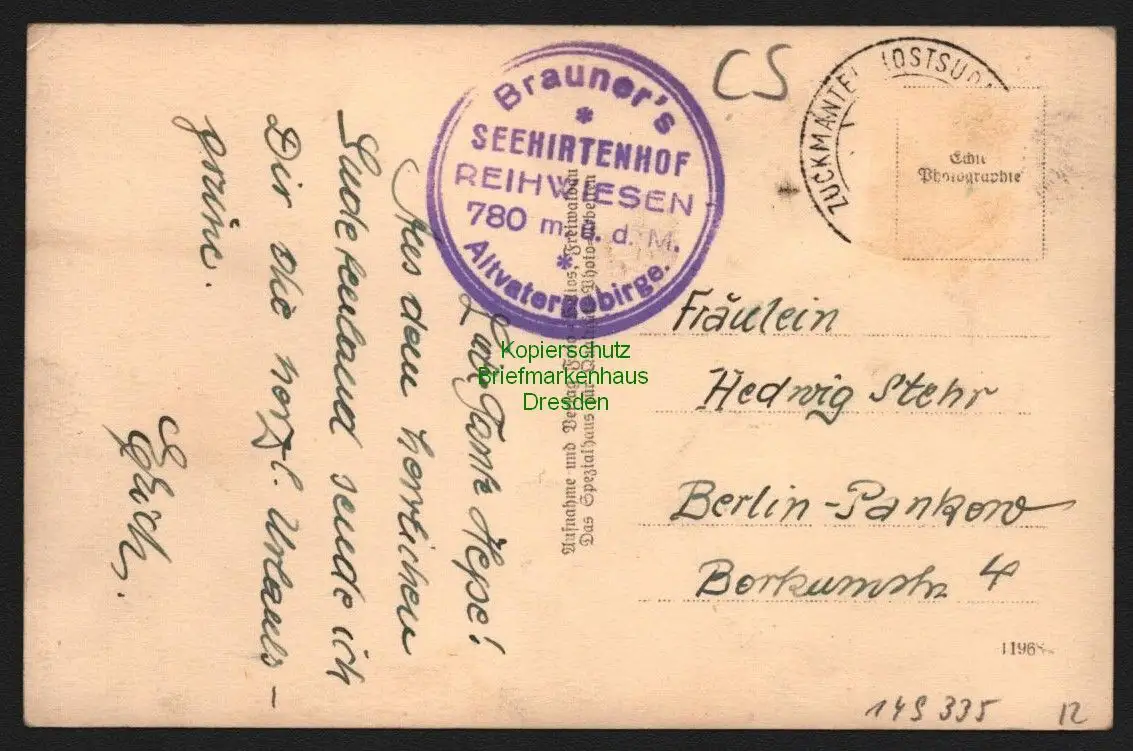 Liebe Tante Hepse!
Aus dem herrlichen
Sudetenland sende ich
Dir die herzl. Urlaubs-
grüße.
Erich.
Brauner's
*
SEEHIRTENHOF
REIHWIESEN
780 m. ü. d. M.
*
Altvatergebirge.
Aufnahme und Verlag: Freiwaldau
Das Spezialhaus für Photo-Arbeiten
CS
ZUCKMANTEL (OSTSUD
Echte
Photographie
Fräulein
Hedwig Stehr
Berlin-Pankow
Borkumstr. 4
1196
149 335
12
Kopierschutz
Briefmarkenhaus
Dresden